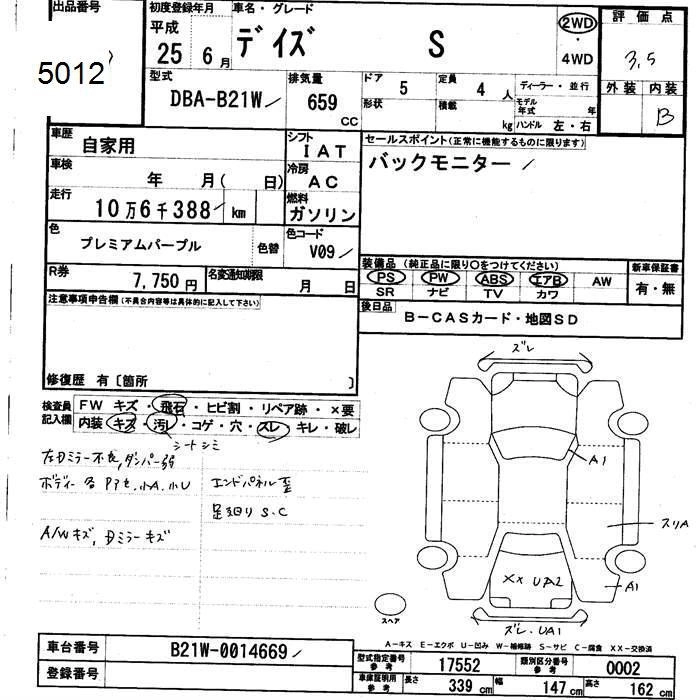 出品番号
5012
初度登録年月
平成
25年6月
車名・グレード
デイズ S
2WD
・
4WD
評価点
3.5
外装 内装
B
型式
DBA-B21W
排気量
659 cc
ドア 5
定員 4 人
形状 積載 kg
ディーラー・並行
モデル年式 年
ハンドル 左・右
車歴 自家用
シフト IAT
車検 年 月( 日)
冷房 AC
走行 10万6千388 km
燃料 ガソリン
色 プレミアムパープル 色替
色コード V09
R券 7,750円
名変通知期限 月 日
セールスポイント(正常に機能するものに限ります)
バックモニター
装備品 (純正品に限り〇をつけてください)
PS PW ABS エアB AW
SR ナビ TV カワ
新車保証書
有・無
後日品
B-CASカード・地図SD
注意事項申告欄(不具合内容等は具体的に記入して下さい)
修復歴 有〔箇所 〕
検査員記入欄
FW キズ・飛石・ヒビ割・リペア跡・×要
内装 キズ・汚レ・コゲ・穴・スレ・キレ・破レ
シートシミ
左Dミラー不良,ダンパー弱
ボディー各Pアセ.小A.小U
エンドパネル歪
足廻りS.C
A/Wキズ,Dミラーキズ
ズレ
A1
スリA
XX UA2
A1
ズレ.UA1
スペア
A-キズ E-エクボ U-凹み W-補修跡 S-サビ C-腐食 XX-交換済
車台番号 B21W-0014669
登録番号
型式指定番号 参考 17552
類別区分番号 参考 0002
車庫証明用 参考 長さ 339 cm 幅 147 cm 高さ 162 cm